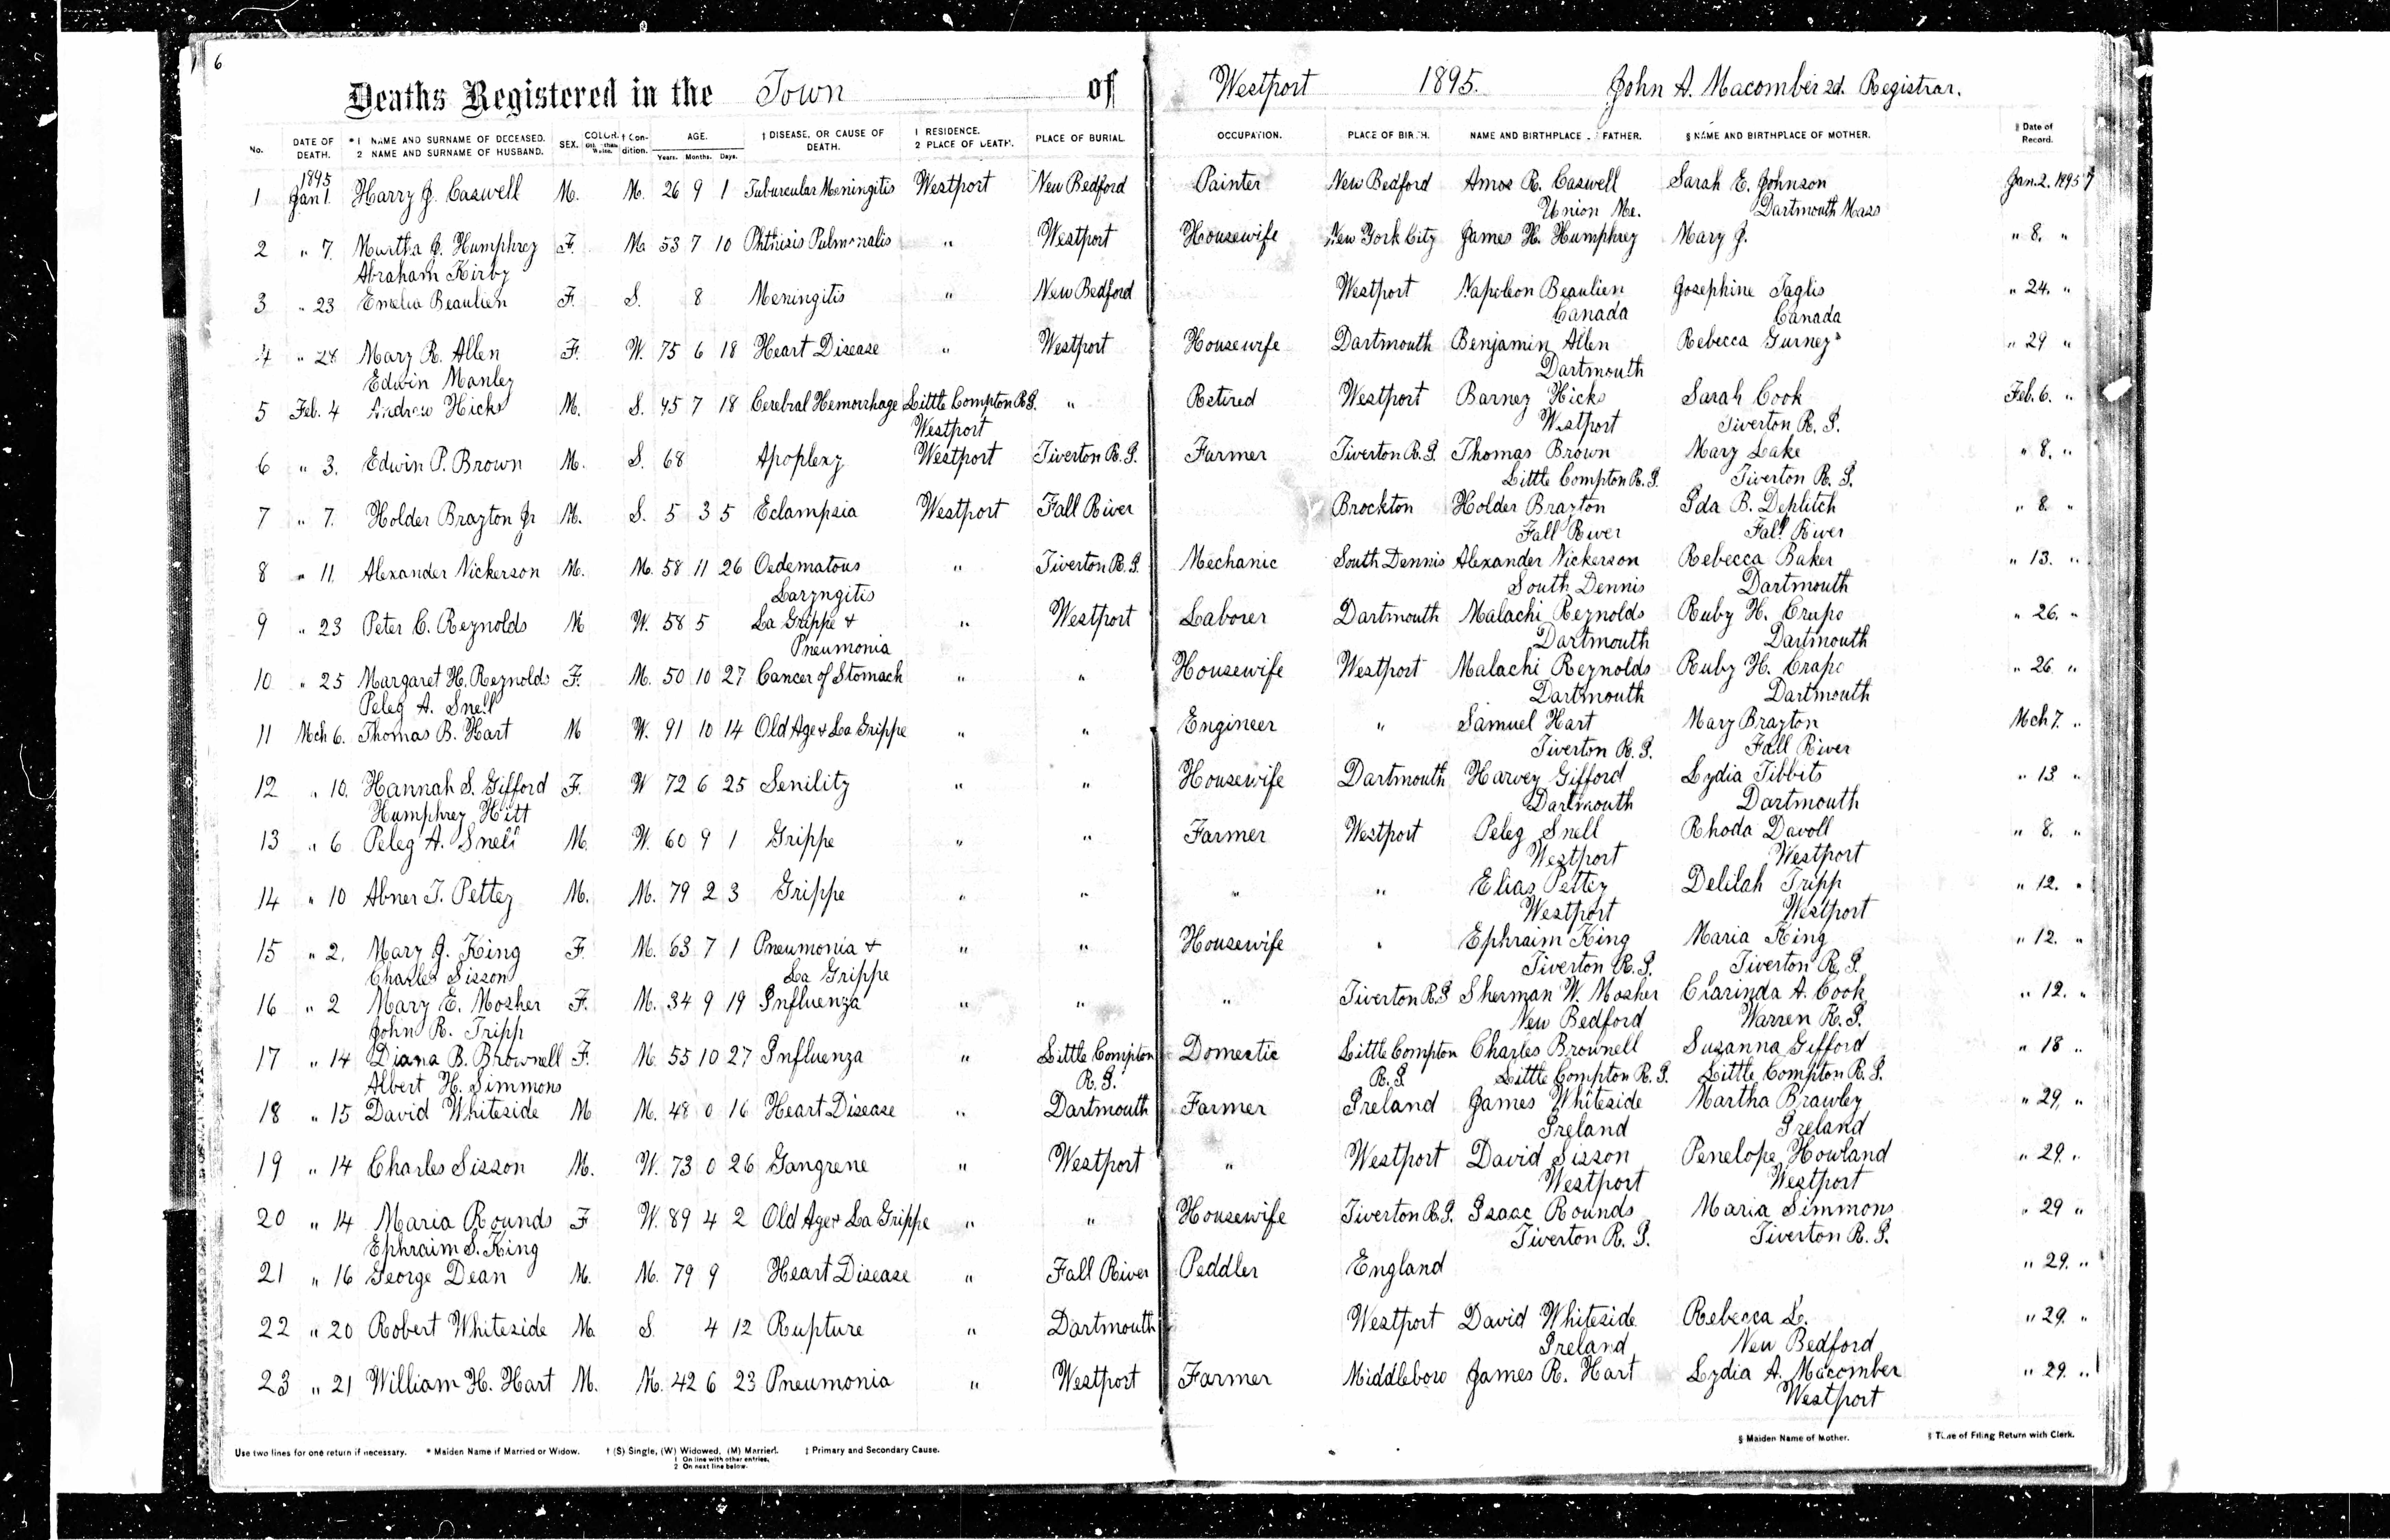 6
Deaths Registered in the Town of Westport 1895. John A. Macomber 2d. Registrar.
No. DATE OF DEATH. *1 NAME AND SURNAME OF DECEASED. 2 NAME AND SURNAME OF HUSBAND. SEX. COLOR. † Condition. AGE. Years. Months. Days. ‡ DISEASE, OR CAUSE OF DEATH. 1 RESIDENCE. 2 PLACE OF DEATH. PLACE OF BURIAL. OCCUPATION. PLACE OF BIRTH. NAME AND BIRTHPLACE FATHER. § NAME AND BIRTHPLACE OF MOTHER. ‖ Date of Record.
1895
1 Jan 1. Harry J. Caswell M. M. 26 9 1 Tuburcular Meningitis Westport New Bedford Painter New Bedford Amos R. Caswell Sarah E. Johnson Jan. 2. 1895
Union Me. Dartmouth Mass
2 " 7. Martha J. Humphrey F. M 53 7 10 Phthisis Pulmonalis " Westport Housewife New York City James H. Humphrey Mary J. " 8. "
Abraham Kirby
3 " 23 Emelia Beaulien F. S. 8 Meningitis " New Bedford Westport Napoleon Beaulien Josephine Taglis " 24. "
Canada Canada
4 " 28 Mary R. Allen F. W. 75 6 18 Heart Disease " Westport Housewife Dartmouth Benjamin Allen Rebecca Gurney " 29 "
Edwin Manley Dartmouth
5 Feb. 4 Andrew Hicks M. S. 7 18 Cerebral Hemorrhage Little Compton R.I. " Retired Westport Barney Hicks Sarah Cook Feb. 6. "
Westport Westport Tiverton R. I.
6 " 3. Edwin P. Brown M. S. 68 Apoplexy Westport Tiverton R.I. Farmer Tiverton R.I. Thomas Brown Mary Lake " 8. "
Little Compton R.I. Tiverton R. I.
7 " 7. Holder Brayton Jr M. S. 5 3 5 Eclampsia Westport Fall River Brockton Holder Brayton Ida B. Deplitch " 8. "
Fall River Fall River
8 " 11 Alexander Nickerson M. M. 58 11 26 Oedematous " Tiverton R.I. Mechanic South Dennis Alexander Nickerson Rebecca Baker " 13. "
Laryngitis South Dennis Dartmouth
9 " 23 Peter C. Reynolds M W. 58 5 La Grippe & " Westport Laborer Dartmouth Malachi Reynolds Ruby H. Crapo " 26. "
Pneumonia Dartmouth Dartmouth
10 " 25 Margaret H. Reynolds F. M. 50 10 27 Cancer of Stomach " " Housewife Westport Malachi Reynolds Ruby H. Crapo " 26 "
Peleg A. Snell Dartmouth Dartmouth
11 Mch 6. Thomas B. Hart M W. 91 10 14 Old Age & La Grippe " " Engineer " Samuel Hart Mary Brayton Mch 7. "
Tiverton R. I. Fall River
12 " 10. Hannah S. Gifford F. W 72 6 25 Senility " " Housewife Dartmouth Harvey Gifford Lydia Tibbits " 13 "
Humphrey Hitt Dartmouth Dartmouth
13 " 6 Peleg A. Snell M. W. 60 9 1 Grippe " " Farmer Westport Peleg Snell Rhoda Davoll " 8. "
Westport Westport
14 " 10 Abner T. Pettey M. M. 79 2 3 Grippe " " " " Elias Pettey Delilah Tripp " 12. "
Westport Westport
15 " 2. Mary J. King F. M. 63 7 1 Pneumonia & " " Housewife " Ephraim King Maria King " 12. "
Charles Sisson La Grippe Tiverton R.I. Tiverton R.I.
16 " 2 Mary E. Mosher F. M. 34 9 19 Influenza " " " Tiverton R.I Sherman W. Mosher Clarinda A. Cook " 12. "
John R. Tripp New Bedford Warren R.I.
17 " 14 Diana B. Brownell F. M. 55 10 27 Influenza " Little Compton Domestic Little Compton Charles Brownell Susanna Gifford " 18 "
Albert H. Simmons R. I. R. I. Little Compton R. I. Little Compton R. I.
18 " 15 David Whiteside M M. 48 0 16 Heart Disease " Dartmouth Farmer Ireland James Whiteside Martha Brawley " 29. "
Ireland Ireland
19 " 14 Charles Sisson M. W. 73 0 26 Gangrene " Westport " Westport David Sisson Penelope Howland " 29. "
Westport Westport
20 " 14 Maria Rounds F W. 89 4 2 Old Age & La Grippe " " Housewife Tiverton R.I. Isaac Rounds Maria Simmons " 29 "
Ephraim S. King Tiverton R. I. Tiverton R. I.
21 " 16 George Dean M. M. 79 9 Heart Disease " Fall River Peddler England " 29. "
22 " 20 Robert Whiteside M. S. 4 12 Rupture " Dartmouth Westport David Whiteside Rebecca L. " 29. "
Ireland New Bedford
23 " 21 William H. Hart M. M. 42 6 23 Pneumonia " Westport Farmer Middleboro James R. Hart Lydia A. Macomber " 29. "
Westport
Use two lines for one return if necessary. * Maiden Name if Married or Widow. † (S) Single, (W) Widowed, (M) Married. ‡ Primary and Secondary Cause. § Maiden Name of Mother. ‖ Time of Filing Return with Clerk.
1 On line with other entries.
2 On next line below.